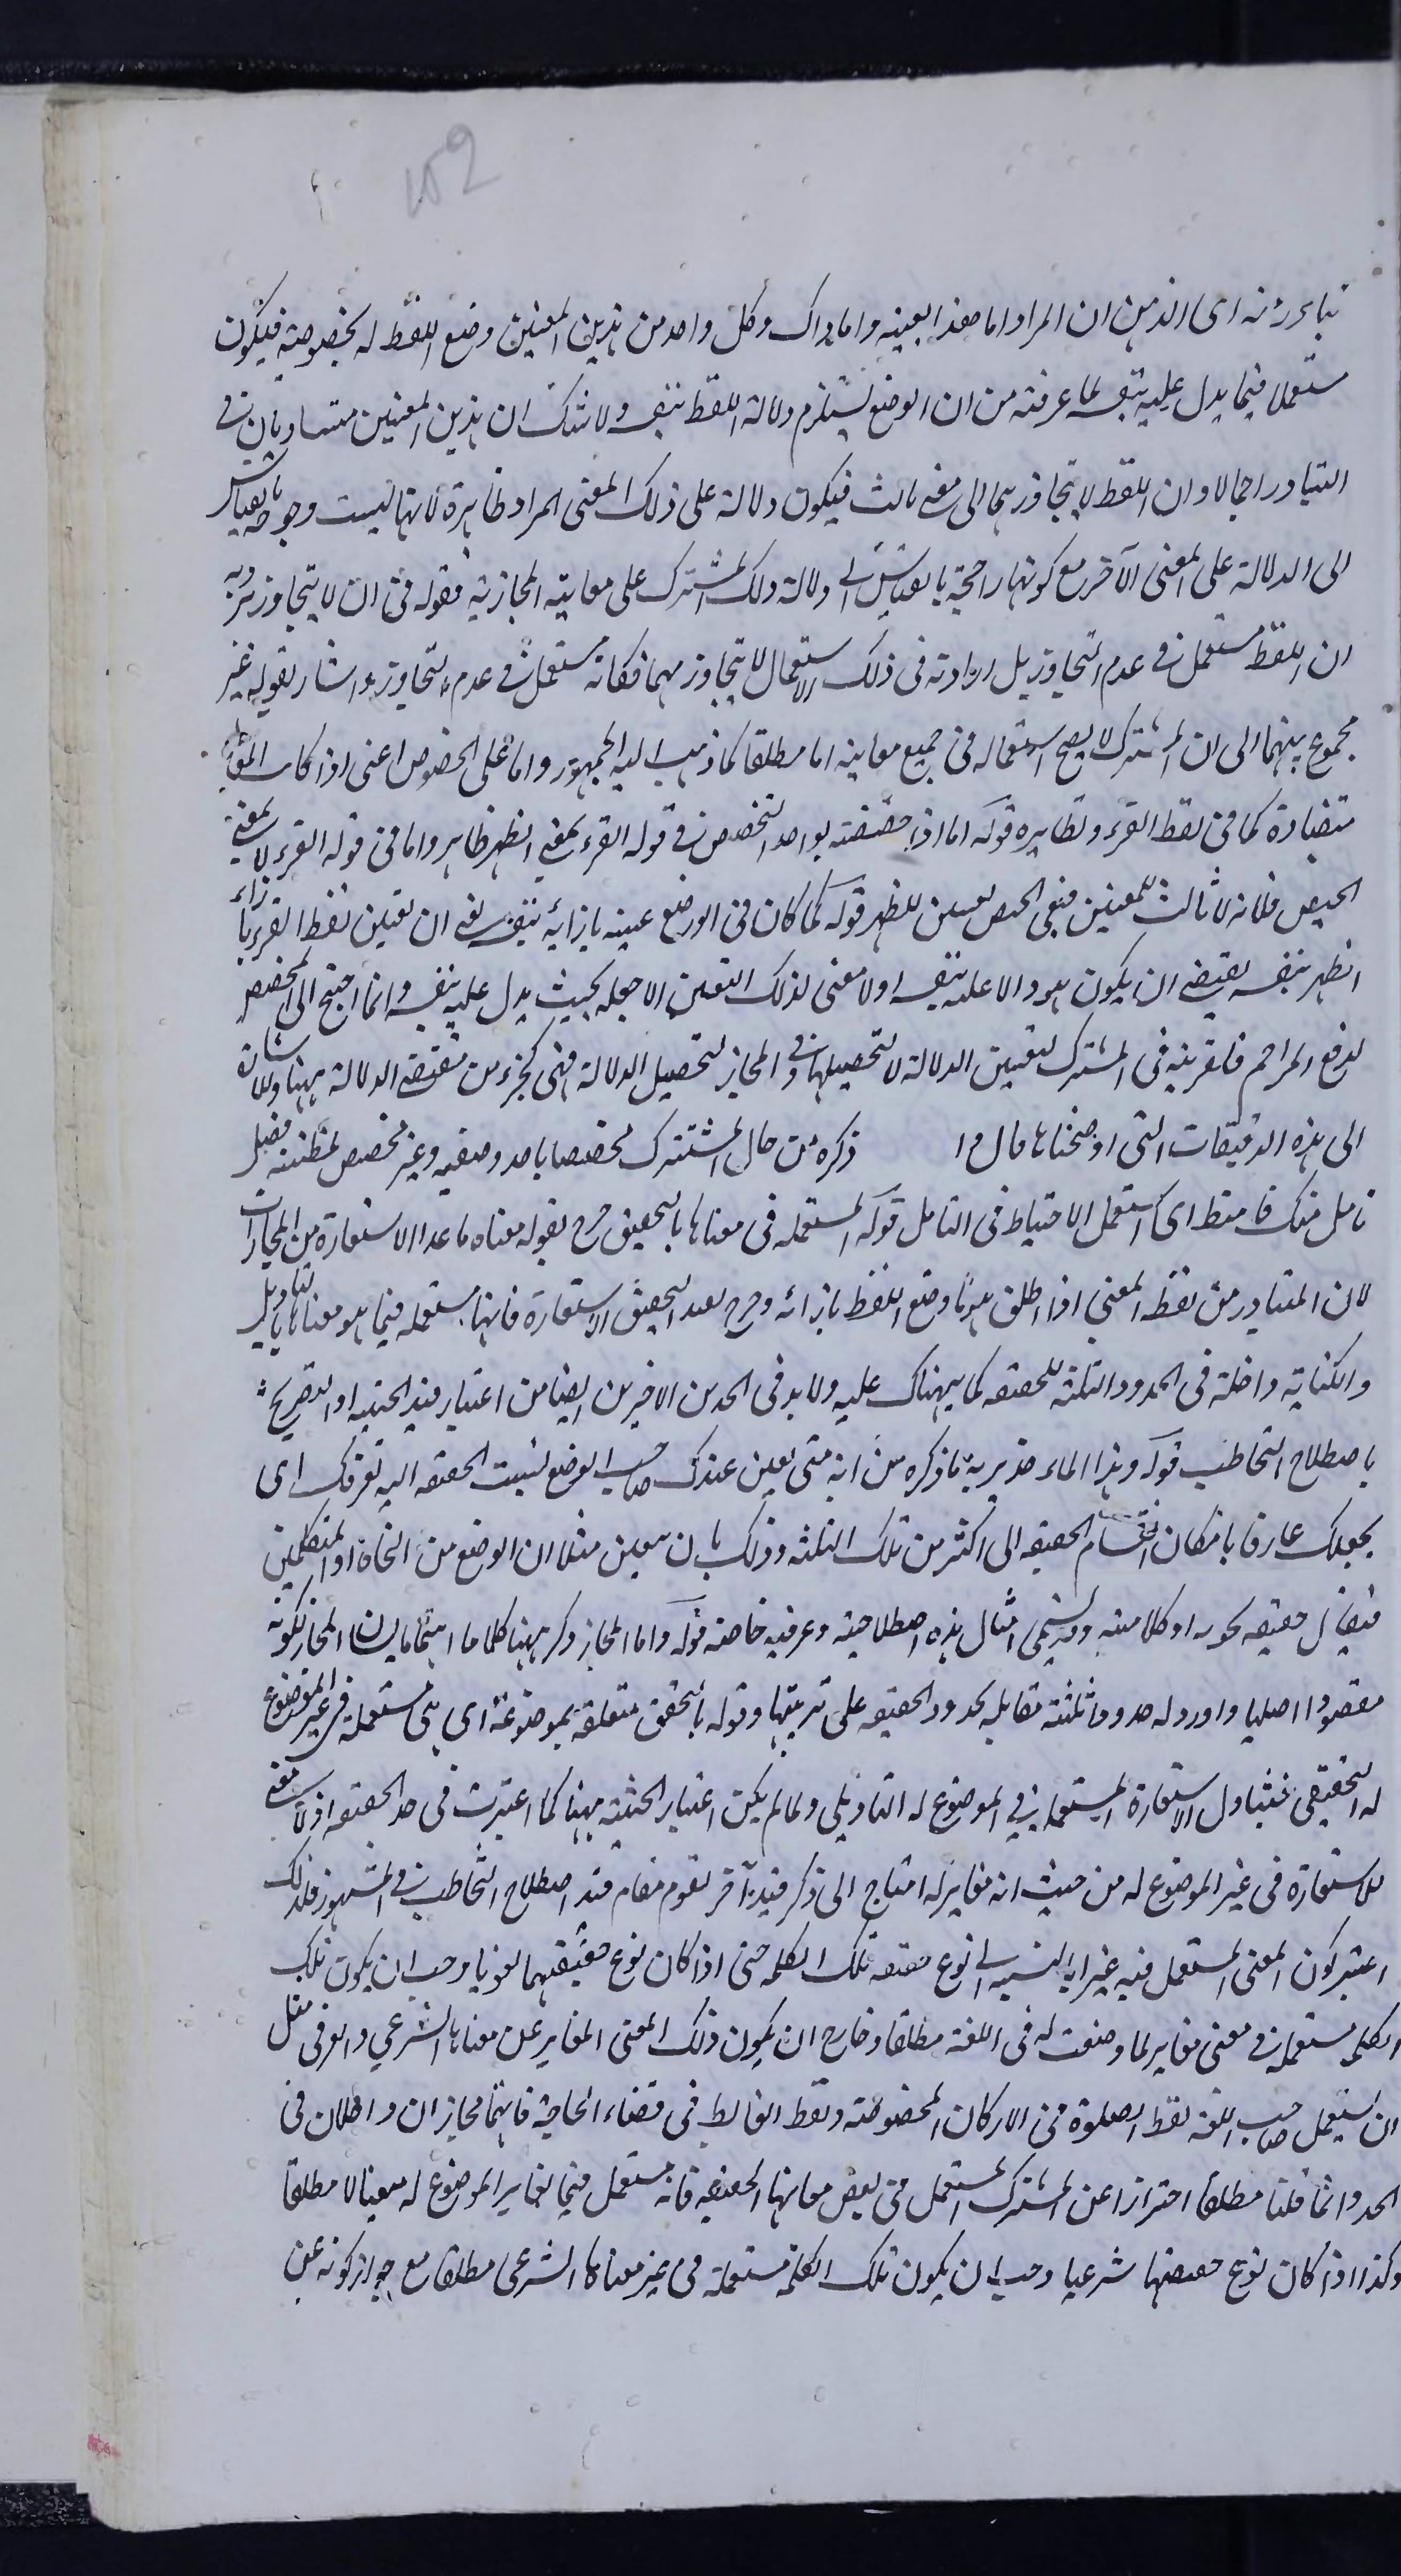 152
اى الذهن ان المراد اما هذا بعينه واما ذاك وكل واحد من هذين المعنيين وضع اللفظ له بخصوصية فيكون
مستعملا فيما يدل عليه بنفسه لما عرفته من ان الوضع يستلزم دلالة اللفظ بنفسه ولا شك ان هذين المعنيين متساويان فى
التبادر اجمالا وان اللفظ لا يتجاوزهما الى معنى ثالث فيكون دلالة على ذلك المعنى المراد ظاهرة لانها ليست مرجوحة بالقياس
الى الدلالة على المعنى الآخر مع كونها راجحة بالقياس الى دلالة ذلك المشترك على معانيه المجازية فقوله فى ان لا يتجاوز يريد به
ان اللفظ مستعمل فى عدم التجاوز بل ارادته فى ذلك الاستعمال لا يتجاوزهما فكانه مستعمل فى عدم التجاوز واشار بقوله غير
مجموع بينهما الى ان المشترك لا يصح استعماله فى جميع معانيه اما مطلقا كما ذهب اليه الجمهور واما على الخصوص اعنى اذا كانت المعانى
متضادة كما فى لفظ القرء ونظايره قوله اما اذا خصصته بواحد التخصص فى قوله القرء بمعنى الطهر ظاهر واما فى قوله القرء لا بمعنى
الحيض فلانه لا ثالث للمعنيين فنفى الحيض تعيين للطهر قوله كما كان فى الوضع عينه بازائه بنفسه يعنى ان تعيين لفظ القرء بازاء
الطهر بنفسه يقتضى ان يكون هو دالا عليه بنفسه اذ لا معنى لذلك التعيين الا جعله بحيث يدل عليه بنفسه وانما احتيج الى المخصص
لدفع المزاحم فالقرينة فى المشترك لتعيين الدلالة لا لتحصيلها وفى المجاز لتحصيل الدلالة فهى كجزء من مقتضى الدلالة ههنا وللاشارة
الى هذه الدقيقات التى اوضحناها قال و ا ذكره من حال المشترك مخصصا باحد وضعيه وغير مخصص لمظنة فضل
تامل منك فاحتط اى استعمل الاحتياط فى التامل قوله المستعمله فى معناها بالتحقيق خرج بقوله معناه ما عدا الاستعارة من المجازات
لان المتبادر من لفظ المعنى اذا اطلق هو ما وضع اللفظ بازائه وخرج بقيد التحقيق الاستعارة فانها مستعمله فيما هو معناها بالتاويل
والكناية داخلة فى الحدود الثلثة للحقيقه كما نبهناك عليه ولا بد فى الحدين الاخيرين ايضا من اعتبار قيد الحيثيه او التصريح
باصطلاح التخاطب قوله وهذا الماء خذ يريد به ما ذكره من انه متى تعين عندك صاحب الوضع نسبت الحقيقه اليه تعرفك اى
يجعلك عارفا بامكان انقسام الحقيقه الى اكثر من تلك الثلثه وذلك بان تعين مثلا ان الوضع من النحاة او المتكلمين
فيقال حقيقه نحويه او كلاميه ويسمى امثال هذه اصطلاحية وعرفيه خاصه قوله واما المجاز ذكر ههنا كلاما اهتماما بشان المجاز لكونه
مقصودا اصليا واورد له حدودا ثلثة مقابله لحدود الحقيقه على ترتيبها وقوله بالتحقيق متعلقه بموضوعة اى هى مستعملة فى غير الموضوع
له التحقيقى فتتناول الاستعارة المستعمله فى الموضوع له التاويلى ولما لم يكن اعتبار الحيثيه ههنا كما اعتبرت فى حد الحقيقه اذ لا معنى
للاستعارة فى غير الموضوع له من حيث انه مغاير له احتاج الى ذكر قيد آخر يقوم مقام قيد اصطلاح التخاطب فى المشهور فلذلك
اعتبر كون المعنى المستعمل فيه غيرا بالنسبه الى نوع حقيقه تلك الكلمه حتى اذا كان نوع حقيقتهما لغويا وجب ان يكون تلك
الكلمه مستعمله فى معنى مغاير لما وضعت له فى اللغة مطلقا وخارج ان يكون ذلك المعنى المغاير عين معناها الشرعى والعرفى مثل
ان يستعمل صاحب اللغه لفظ الصلوة فى الاركان المخصوصة ولفظ الغائط فى قضاء الحاجة فانهما مجازان داخلان فى
الحد وانما قلنا مطلقا احترازا عن المشترك المستعمل فى بعض معانيها الحقيقيه فانه مستعمل فيما يغاير الموضوع له معينا لا مطلقا
وكذا اذا كان نوع حقيقتها شرعيا وجب ان يكون تلك الكلمة مستعملة فى غير معناها الشرعى مطلقا مع جواز كونه عين